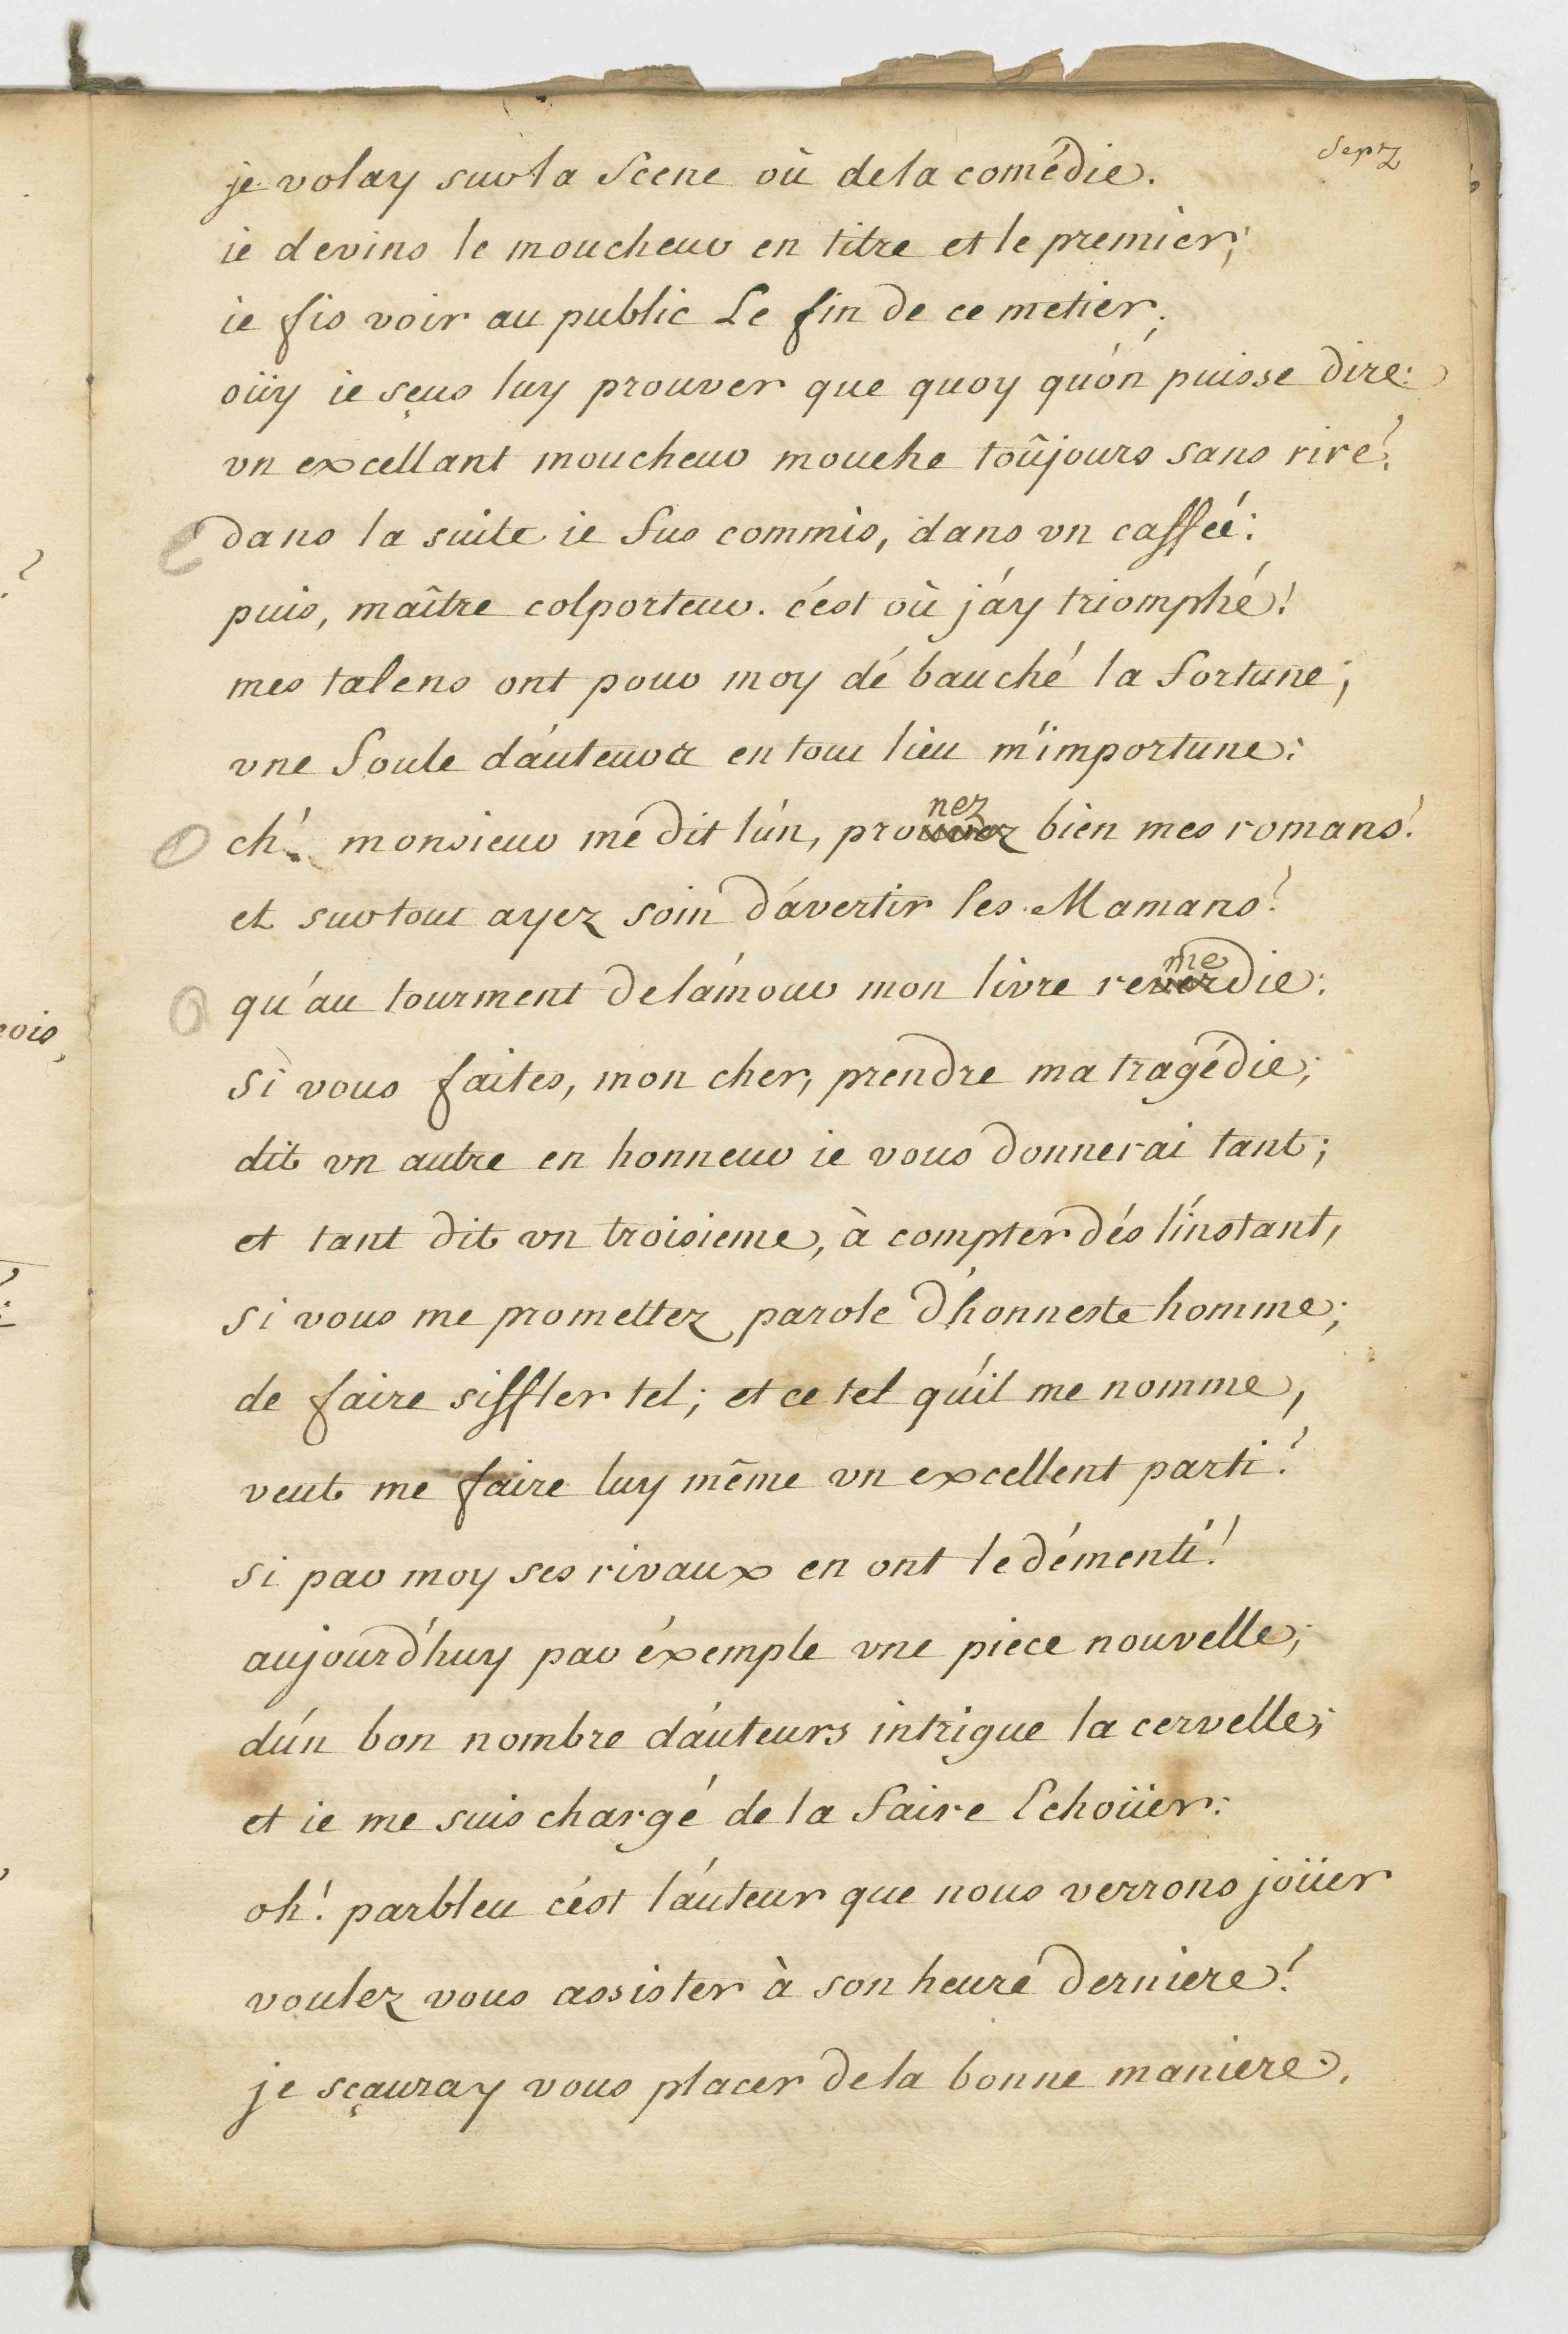 sept
je volay sur la Scene où de la comédie.
ie devins le moucheur en titre et le premier;
ie fis voir au public Le fin de ce metier;
oüy ie sçus luy prouver que quoy qu'on puisse dire:
vn excellant moucheur mouche toûjours sans rire!
dans la suite ie fus commis, dans vn caffeé:
puis, maître colporteur. c'est où j'ay triomphé!
mes talens ont pour moy débauché la fortune;
vne foule d'auteurs en tout lieu m'importune:
eh! monsieur me dit l'un, pronez bien mes romans!
et surtout ayez soin d'avertir les Mamans!
qu'au tourment de l'amour mon livre remedie:
si vous faites, mon cher, prendre ma tragédie;
dit vn autre en honneur ie vous donnerai tant;
et tant dit vn troisieme, à compter dés l'instant,
si vous me promettez parole d'honneste homme;
de faire siffler tel; et ce tel qu'il me nomme,
veut me faire luy même vn excellent parti!
si par moy ses rivaux en ont le démenti!
aujourd'huy par éxemple vne piece nouvelle;
d'un bon nombre d'auteurs intrigue la cervelle;
et ie me suis chargé de la faire Echoüer:
oh! parbleu c'est l'auteur que nous verrons joüer
voulez vous assister à son heure derniere!
je sçauray vous placer de la bonne maniere.